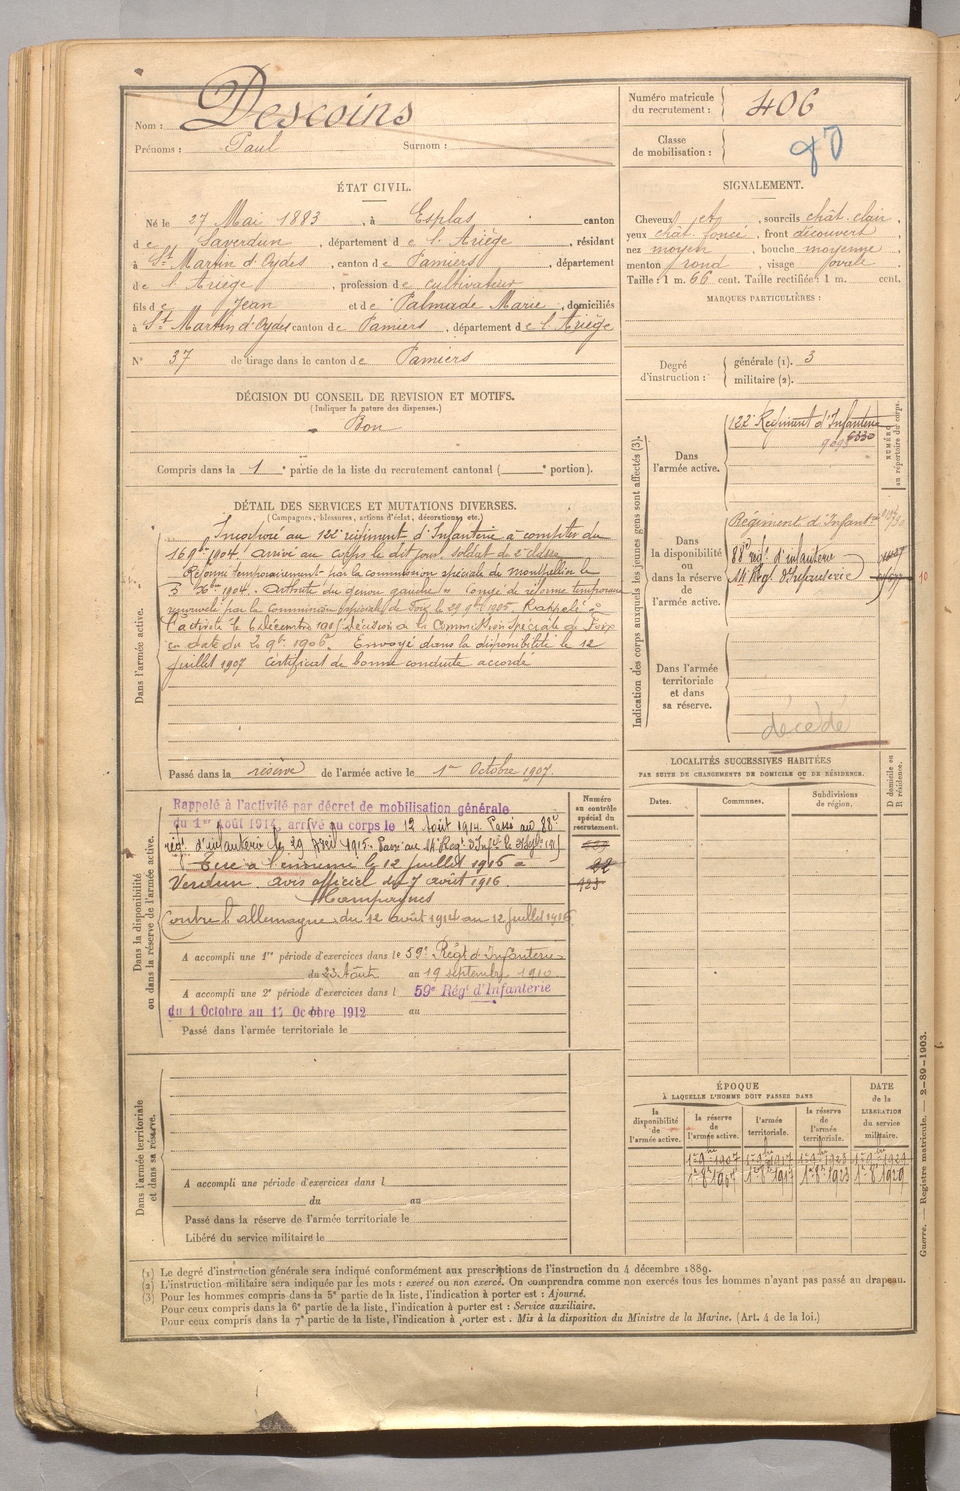 Nom : Descoins
Prénoms : Paul Surnom :
Numéro matricule du recrutement : 406
Classe de mobilisation :
ÉTAT CIVIL.
Né le 27 Mai 1883, à Esplas canton
de Saverdun, département de l'Ariège, résidant
à St Martin d'Oydes, canton de Pamiers, département
de l'Ariège, profession de cultivateur
fils de Jean et de Palmade Marie, domiciliés
à St Martin d'Oydes canton de Pamiers, département de l'Ariège
N° 37 de tirage dans le canton de Pamiers
SIGNALEMENT.
Cheveux et, sourcils chât. clair,
yeux chât. foncé, front découvert
nez moyen, bouche moyenne
menton rond, visage ovale
Taille : 1 m. 66 cent. Taille rectifiée : 1 m. cent.
MARQUES PARTICULIÈRES :
Degré d'instruction : générale (1). 3
militaire (2).
DÉCISION DU CONSEIL DE REVISION ET MOTIFS.
(Indiquer la nature des dispenses.)
Bon
Compris dans la 1e partie de la liste du recrutement cantonal ( e portion).
DÉTAIL DES SERVICES ET MUTATIONS DIVERSES.
(Campagnes, blessures, actions d'éclat, décorations, etc.)
Dans l'armée active.
Incorporé au 122e régiment d'Infanterie à compter du
16 9bre 1904. arrivé au corps le dit jour, soldat de 2e classe
Réformé temporairement par la commission spéciale de Montpellier le
Arthrite du genou gauche congé de réforme temporaire
renouvelé par la Commission spéciale de Foix le 29 9bre 1905. Rappelé à
l'activité le 6 décembre Décision de la Commission spéciale de Foix
en date du 20 9bre 1906. Envoyé dans la disponibilité le 12
Juillet 1907 Certificat de bonne conduite accordé
Passé dans la réserve de l'armée active le 1er Octobre 1907.
Indication des corps auxquels les jeunes gens sont affectés (3).
NUMÉRO au répertoire du corps.
Dans l'armée active.
122e Régiment d'Infanterie
Dans la disponibilité ou dans la réserve de l'armée active.
Régiment d'Infanterie
88e rég. d'infanterie
14e Rég. d'Infanterie
10
Dans l'armée territoriale et dans sa réserve.
décédé
LOCALITÉS SUCCESSIVES HABITÉES
PAR SUITE DE CHANGEMENTS DE DOMICILE OU DE RÉSIDENCE.
Dates. Communes. Subdivisions de région. D domicile ou R résidence.
Dans la disponibilité ou dans la réserve de l'armée active.
Numéro au contrôle spécial du recrutement.
Rappelé à l'activité par décret de mobilisation générale
du 1er août 1914, arrivé au corps le 12 Août 1914. Passé au 88e
rég. d'infanterie le 29 1915. Passé au 14e Rég. d'Inf. le
Tué à l'ennemi le 12 juillet 1916 à
Verdun. avis officiel du 7 août 1916.
Campagnes
Contre l'allemagne du 12 août 1914 au 12 juillet 1916
A accompli une 1re période d'exercices dans le 59e Régt d'Infanterie
du 23 Août au 19 septembre 1910.
A accompli une 2e période d'exercices dans l 59e Rég. d'Infanterie
du 1 Octobre au Octobre 1912 au
Passé dans l'armée territoriale le
Dans l'armée territoriale et dans sa réserve.
A accompli une période d'exercices dans l
du au
Passé dans la réserve de l'armée territoriale le
Libéré du service militaire le
ÉPOQUE
À LAQUELLE L'HOMME DOIT PASSER DANS
la disponibilité de l'armée active.
la réserve de l'armée active.
l'armée territoriale.
la réserve de l'armée territoriale.
DATE de la LIBÉRATION du service militaire.
1er 9bre 1907 1er 9bre 1917 1er 9bre 1923 1er 9bre 1929
1er 8bre 1907 1er 8bre 1917 1er 8bre 1923 1er 8bre 1929
Guerre. — Registre matricule. — 2-89-1903.
(1) Le degré d'instruction générale sera indiqué conformément aux prescriptions de l'instruction du 4 décembre 1889.
(2) L'instruction militaire sera indiquée par les mots : exercé ou non exercé. On comprendra comme non exercés tous les hommes n'ayant pas passé au drapeau.
(3) Pour les hommes compris dans la 5e partie de la liste, l'indication à porter est : Ajourné.
Pour ceux compris dans la 6e partie de la liste, l'indication à porter est : Service auxiliaire.
Pour ceux compris dans la 7e partie de la liste, l'indication à porter est : Mis à la disposition du Ministre de la Marine. (Art. 4 de la loi.)